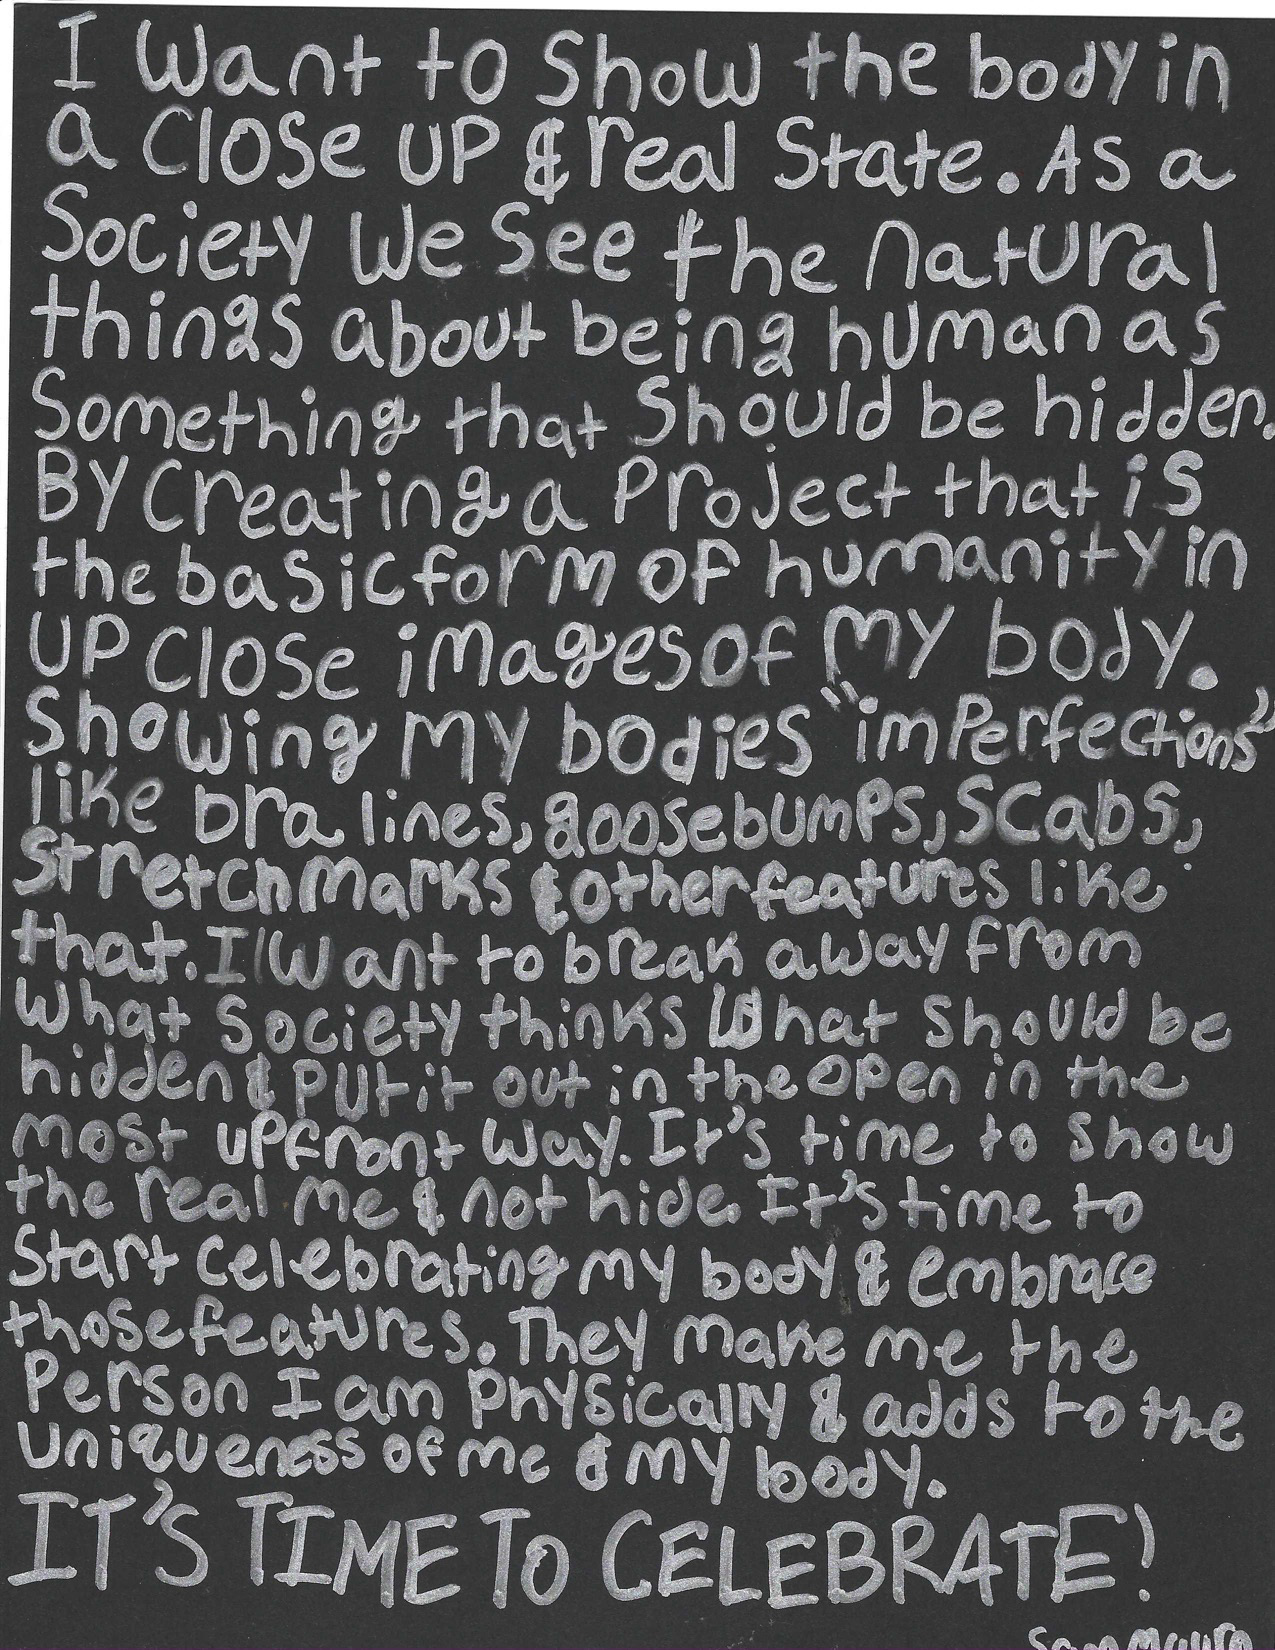 I want to show the body in
a close up & real state. As a
society we see the natural
things about being human as
something that should be hidden.
By creating a project that is
the basic form of humanity in
up close images of my body.
Showing my bodies "imperfections"
like bra lines, goosebumps, scabs,
stretchmarks & other features like
that. I want to break away from
what society thinks what should be
hidden & put it out in the open in the
most upfront way. It's time to show
the real me & not hide. It's time to
start celebrating my body & embrace
those features. They make me the
person I am physically & adds to the
uniqueness of me & my body.
IT'S TIME TO CELEBRATE!
Sam